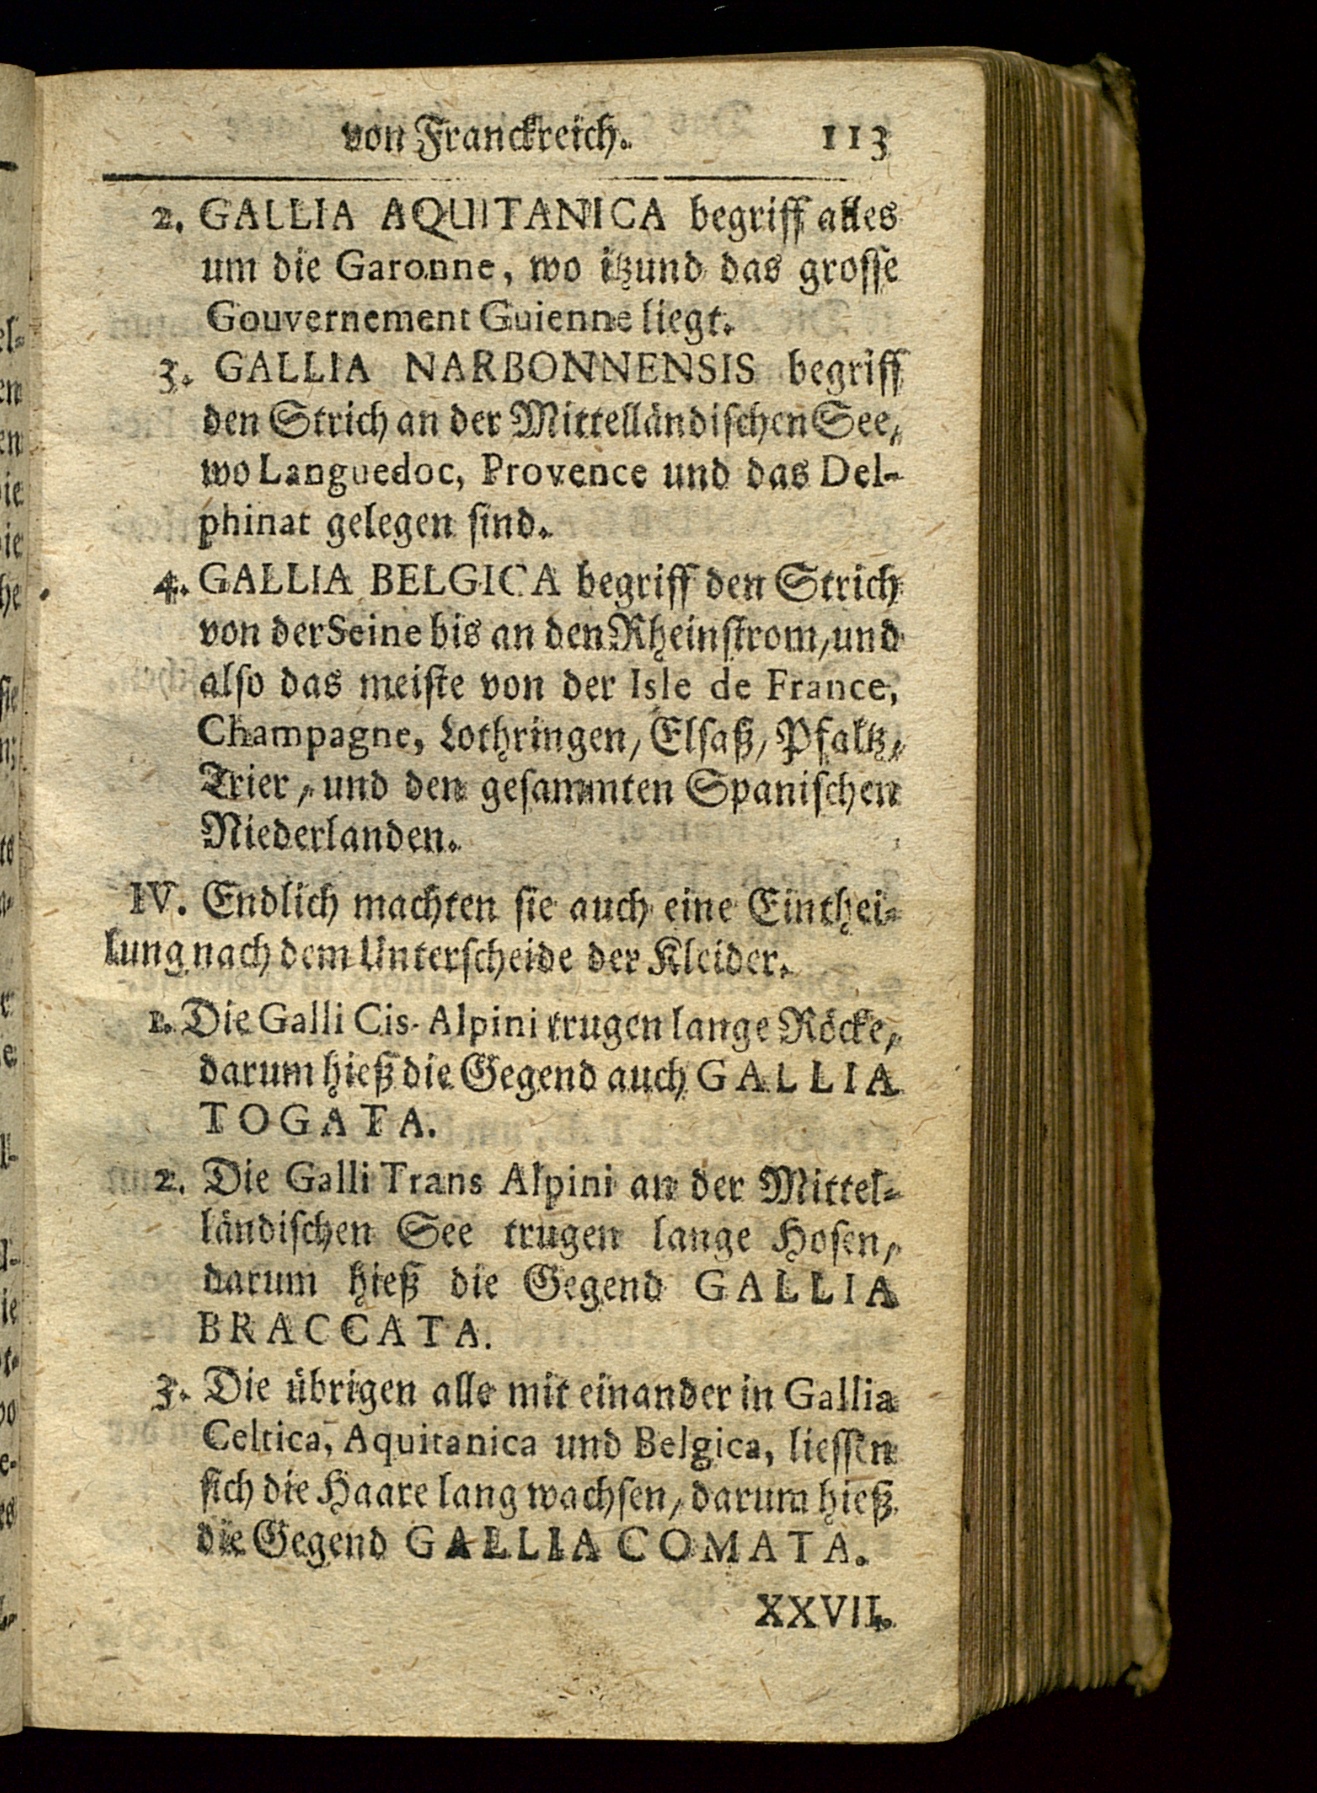 von Franckreich. 113
2. GALLIA AQUITANICA begriff alles
um die Garonne, wo itzund das grosse
Gouvernement Guienne liegt.
3. GALLIA NARBONNENSIS begriff
den Strich an der Mittelländischen See,
wo Languedoc, Provence und das Del-
phinat gelegen sind.
4. GALLIA BELGICA begriff den Strich
von der Seine bis an den Rheinstrom, und
also das meiste von der Isle de France,
Champagne, Lothringen, Elsaß, Pfaltz,
Trier, und den gesammten Spanischen
Niederlanden.
IV. Endlich machten sie auch eine Einthei-
lung nach dem Unterscheide der Kleider.
1. Die Galli Cis-Alpini trugen lange Röcke,
darum hieß die Gegend auch GALLIA
TOGATA.
2. Die Galli Trans Alpini an der Mittel-
ländischen See trugen lange Hosen,
darum hieß die Gegend GALLIA
BRACCATA.
3. Die übrigen alle mit einander in Gallia
Celtica, Aquitanica und Belgica, liessen
sich die Haare lang wachsen, darum hieß
die Gegend GALLIA COMATA.
XXVII.